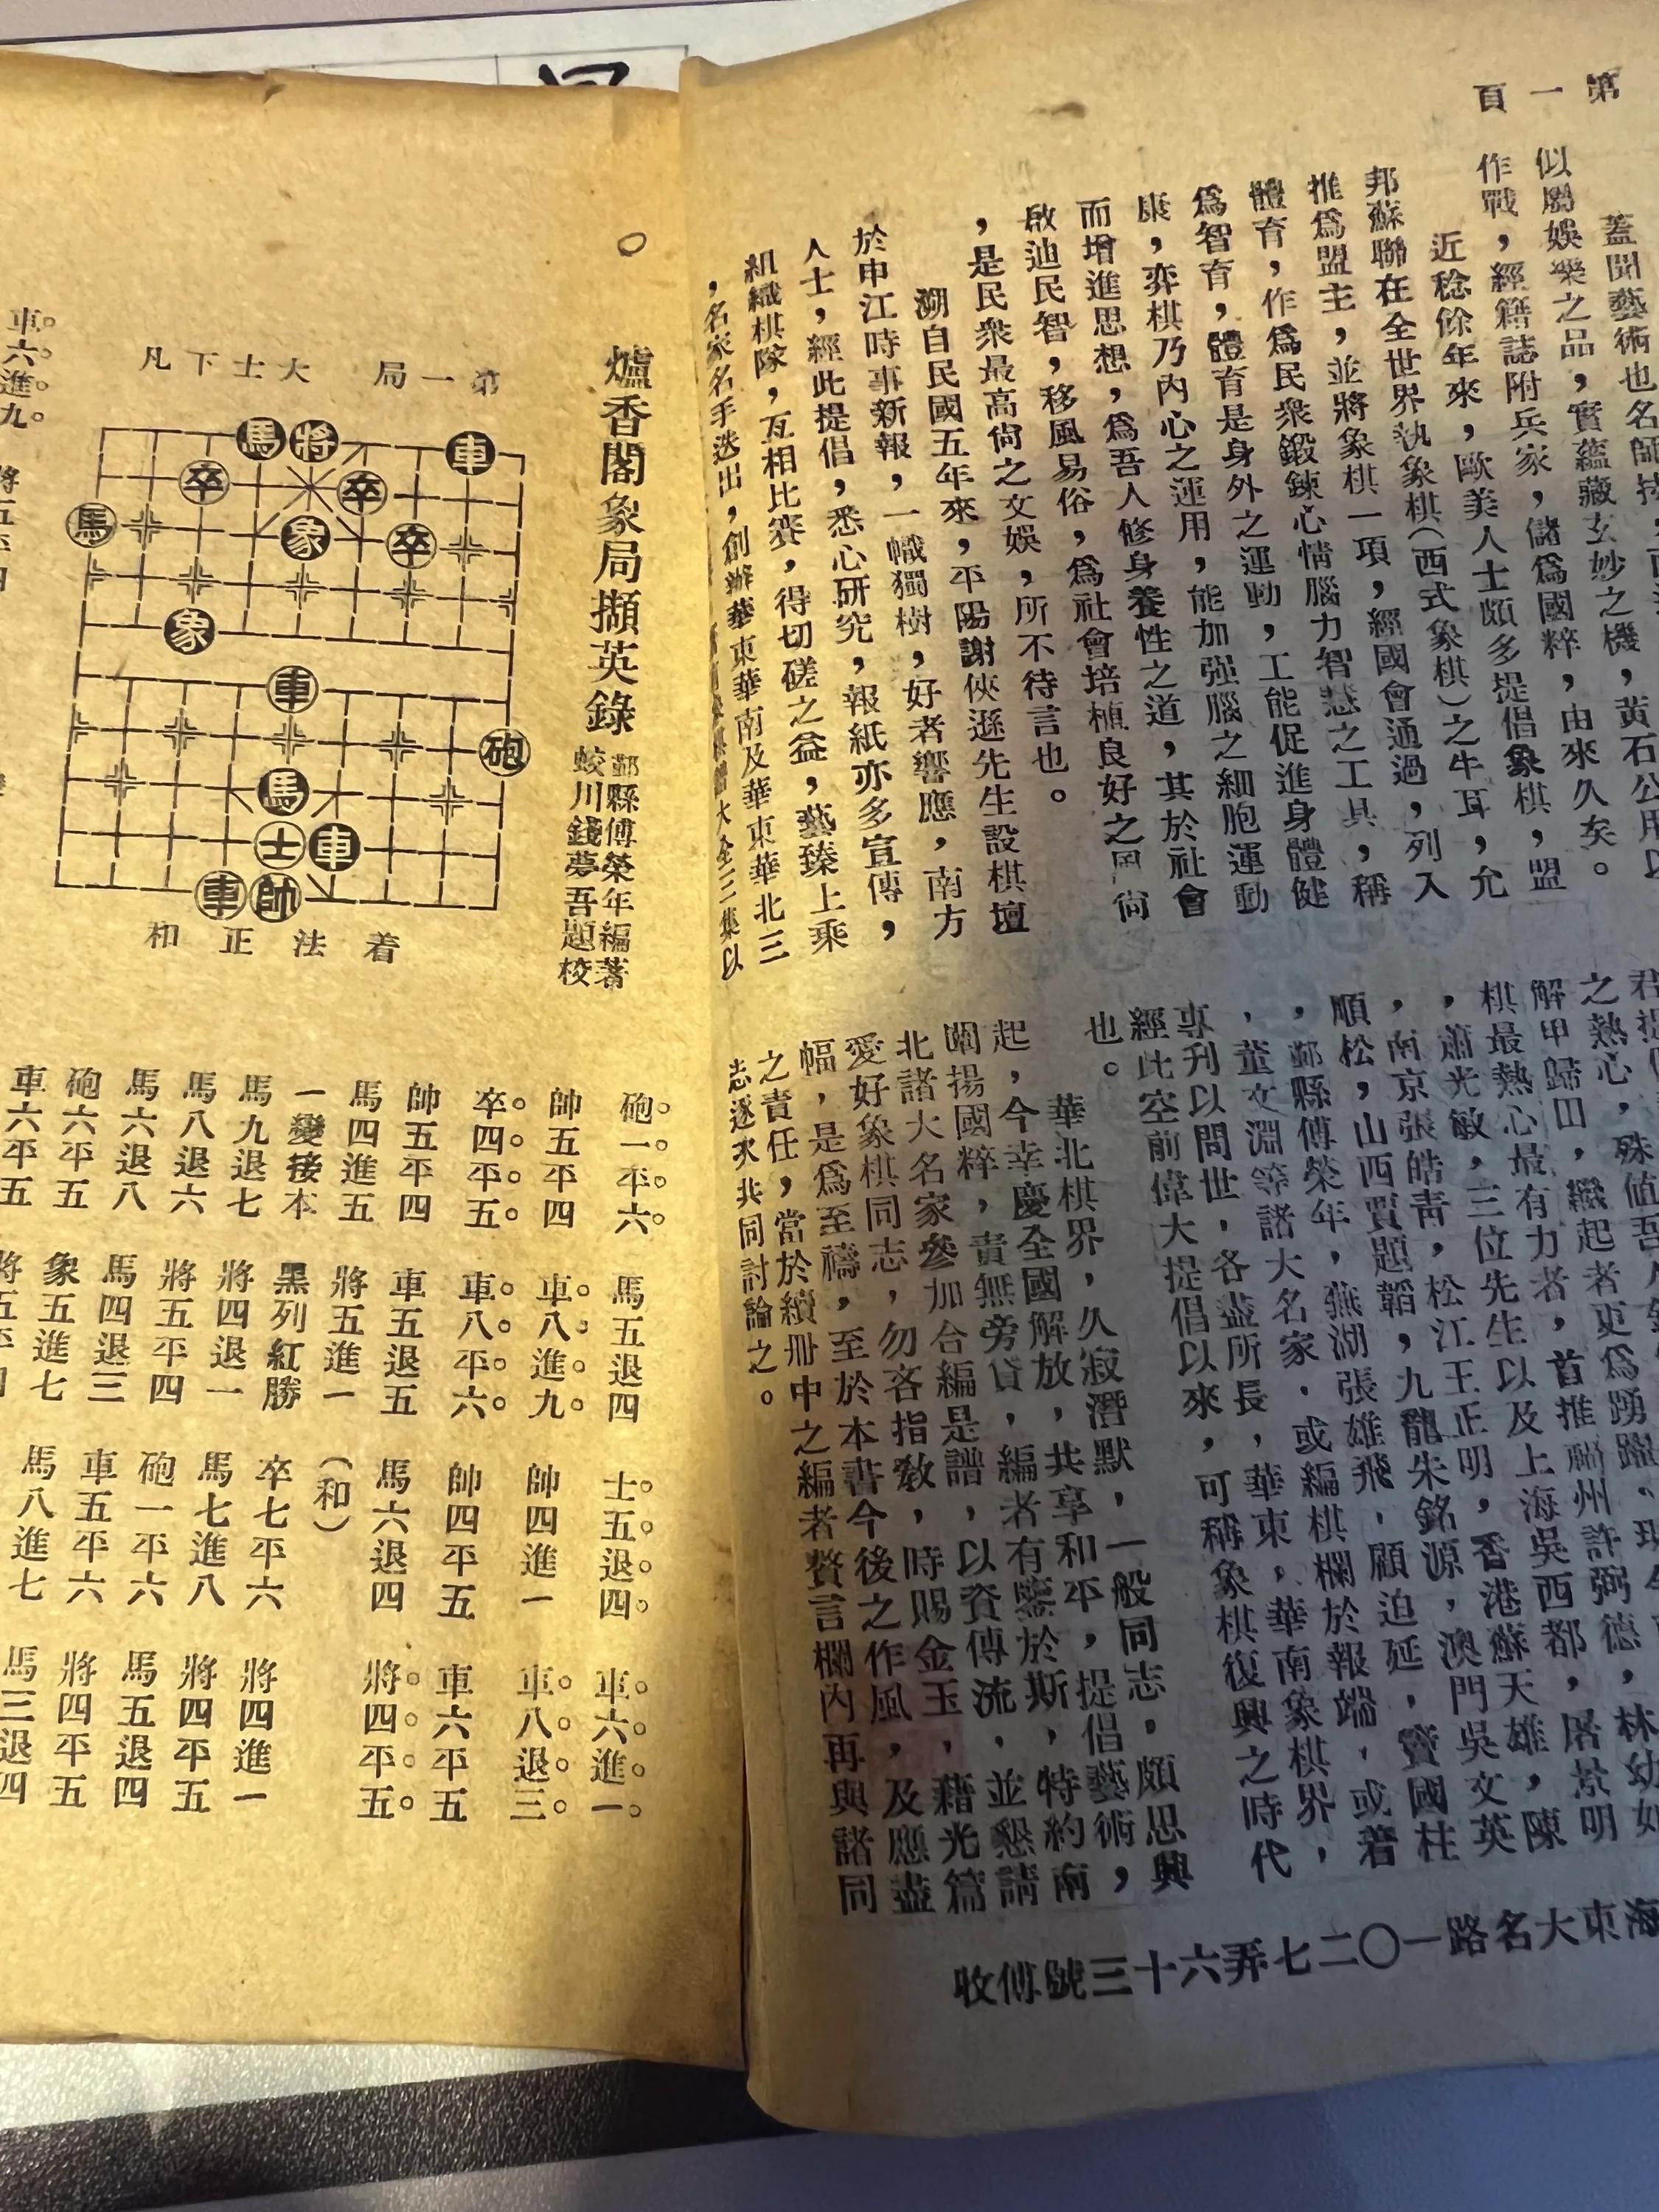 第一頁
蓋聞藝術也名師
似屬娛樂之品,實蘊藏玄妙之機,黃石公用以
作戰,經籍誌附兵家,儲爲國粹,由來久矣。
近稔餘年來,歐美人士頗多提倡象棋,盟
邦蘇聯在全世界執象棋(西式象棋)之牛耳,允
推爲盟主,並將象棋一項,經國會通過,列入
體育,作爲民衆鍛鍊心情腦力智慧之工具,稱
爲智育,體育是身外之運動,工能促進身體健
康,弈棋乃內心之運用,能加强腦之細胞運動
而增進思想,爲吾人修身養性之道,其於社會
啟迪民智,移風易俗,爲社會培植良好之風尙
,是民衆最高尙之文娛,所不待言也。
溯自民國五年來,平陽謝俠遜先生設棋壇
於申江時事新報,一幟獨樹,好者響應,南方
人士,經此提倡,悉心研究,報紙亦多宣傳,
組織棋隊,互相比賽,得切磋之益,藝臻上乘
,名家名手迭出,創辦華東華南及華東華北三
大全三集以
之熱心,殊值吾人
解甲歸田,繼起者更爲踴躍。現今
棋最熱心最有力者,首推福州許弼德,林幼如
,蕭光敏,三位先生以及上海吳西都,屠景明
,南京張皓靑,松江王正明,香港蘇天雄,陳
順松,山西賈題韜,九龍朱銘源,澳門吳文英
,鄞縣傅榮年,蕪湖張雄飛,顧迫延,竇國柱
,董文淵等諸大名家.或編棋欄於報端,或著
專刊以問世,各盡所長,華東,華南象棋界,
經此空前偉大提倡以來,可稱象棋復興之時代
也。
華北棋界,久寂潛默,一般同志,頗思興
起,今幸慶全國解放,共享和平,提倡藝術,
闡揚國粹,責無旁貸,編者有鑒於斯,特約南
北諸大名家參加合編是譜,以資傳流,並懇請
愛好象棋同志,勿吝指敎,時賜金玉,藉光篇
幅,是爲至禱,至於本書今後之作風,及應盡
之責任,當於續冊中之編者贅言欄內再與諸同
志逐次共同討論之。
海東大名路一〇二七弄六十三號傅收
爐香閣象局擷英錄
鄞縣傅榮年編著
蛟川錢夢吾題校
第一局 大士下凡
馬 將 車
卒 卒
馬 象 卒
象
車
砲
馬
士 車
車 帥
着法正和
砲一平六 馬五退四 士五退四 車六進一
帥五平四 車八進九 帥四進一 車八退三
卒四平五 車八平六 帥四平五 車六平五
帥五平四 車五退五 馬六退四 將四平五
馬四進五 將五進一 (和)
一變接本 黑列紅勝 卒七平六 將四進一
馬九退七 將四退一 馬七進八 將四平五
馬八退六 將五平四 砲一平六 馬五退四
馬六退八 馬四退三 車五平六 將四平五
砲六平五 象五進七 馬八進七 馬三退四
車六平五 將五平四
車六進九 將五平四